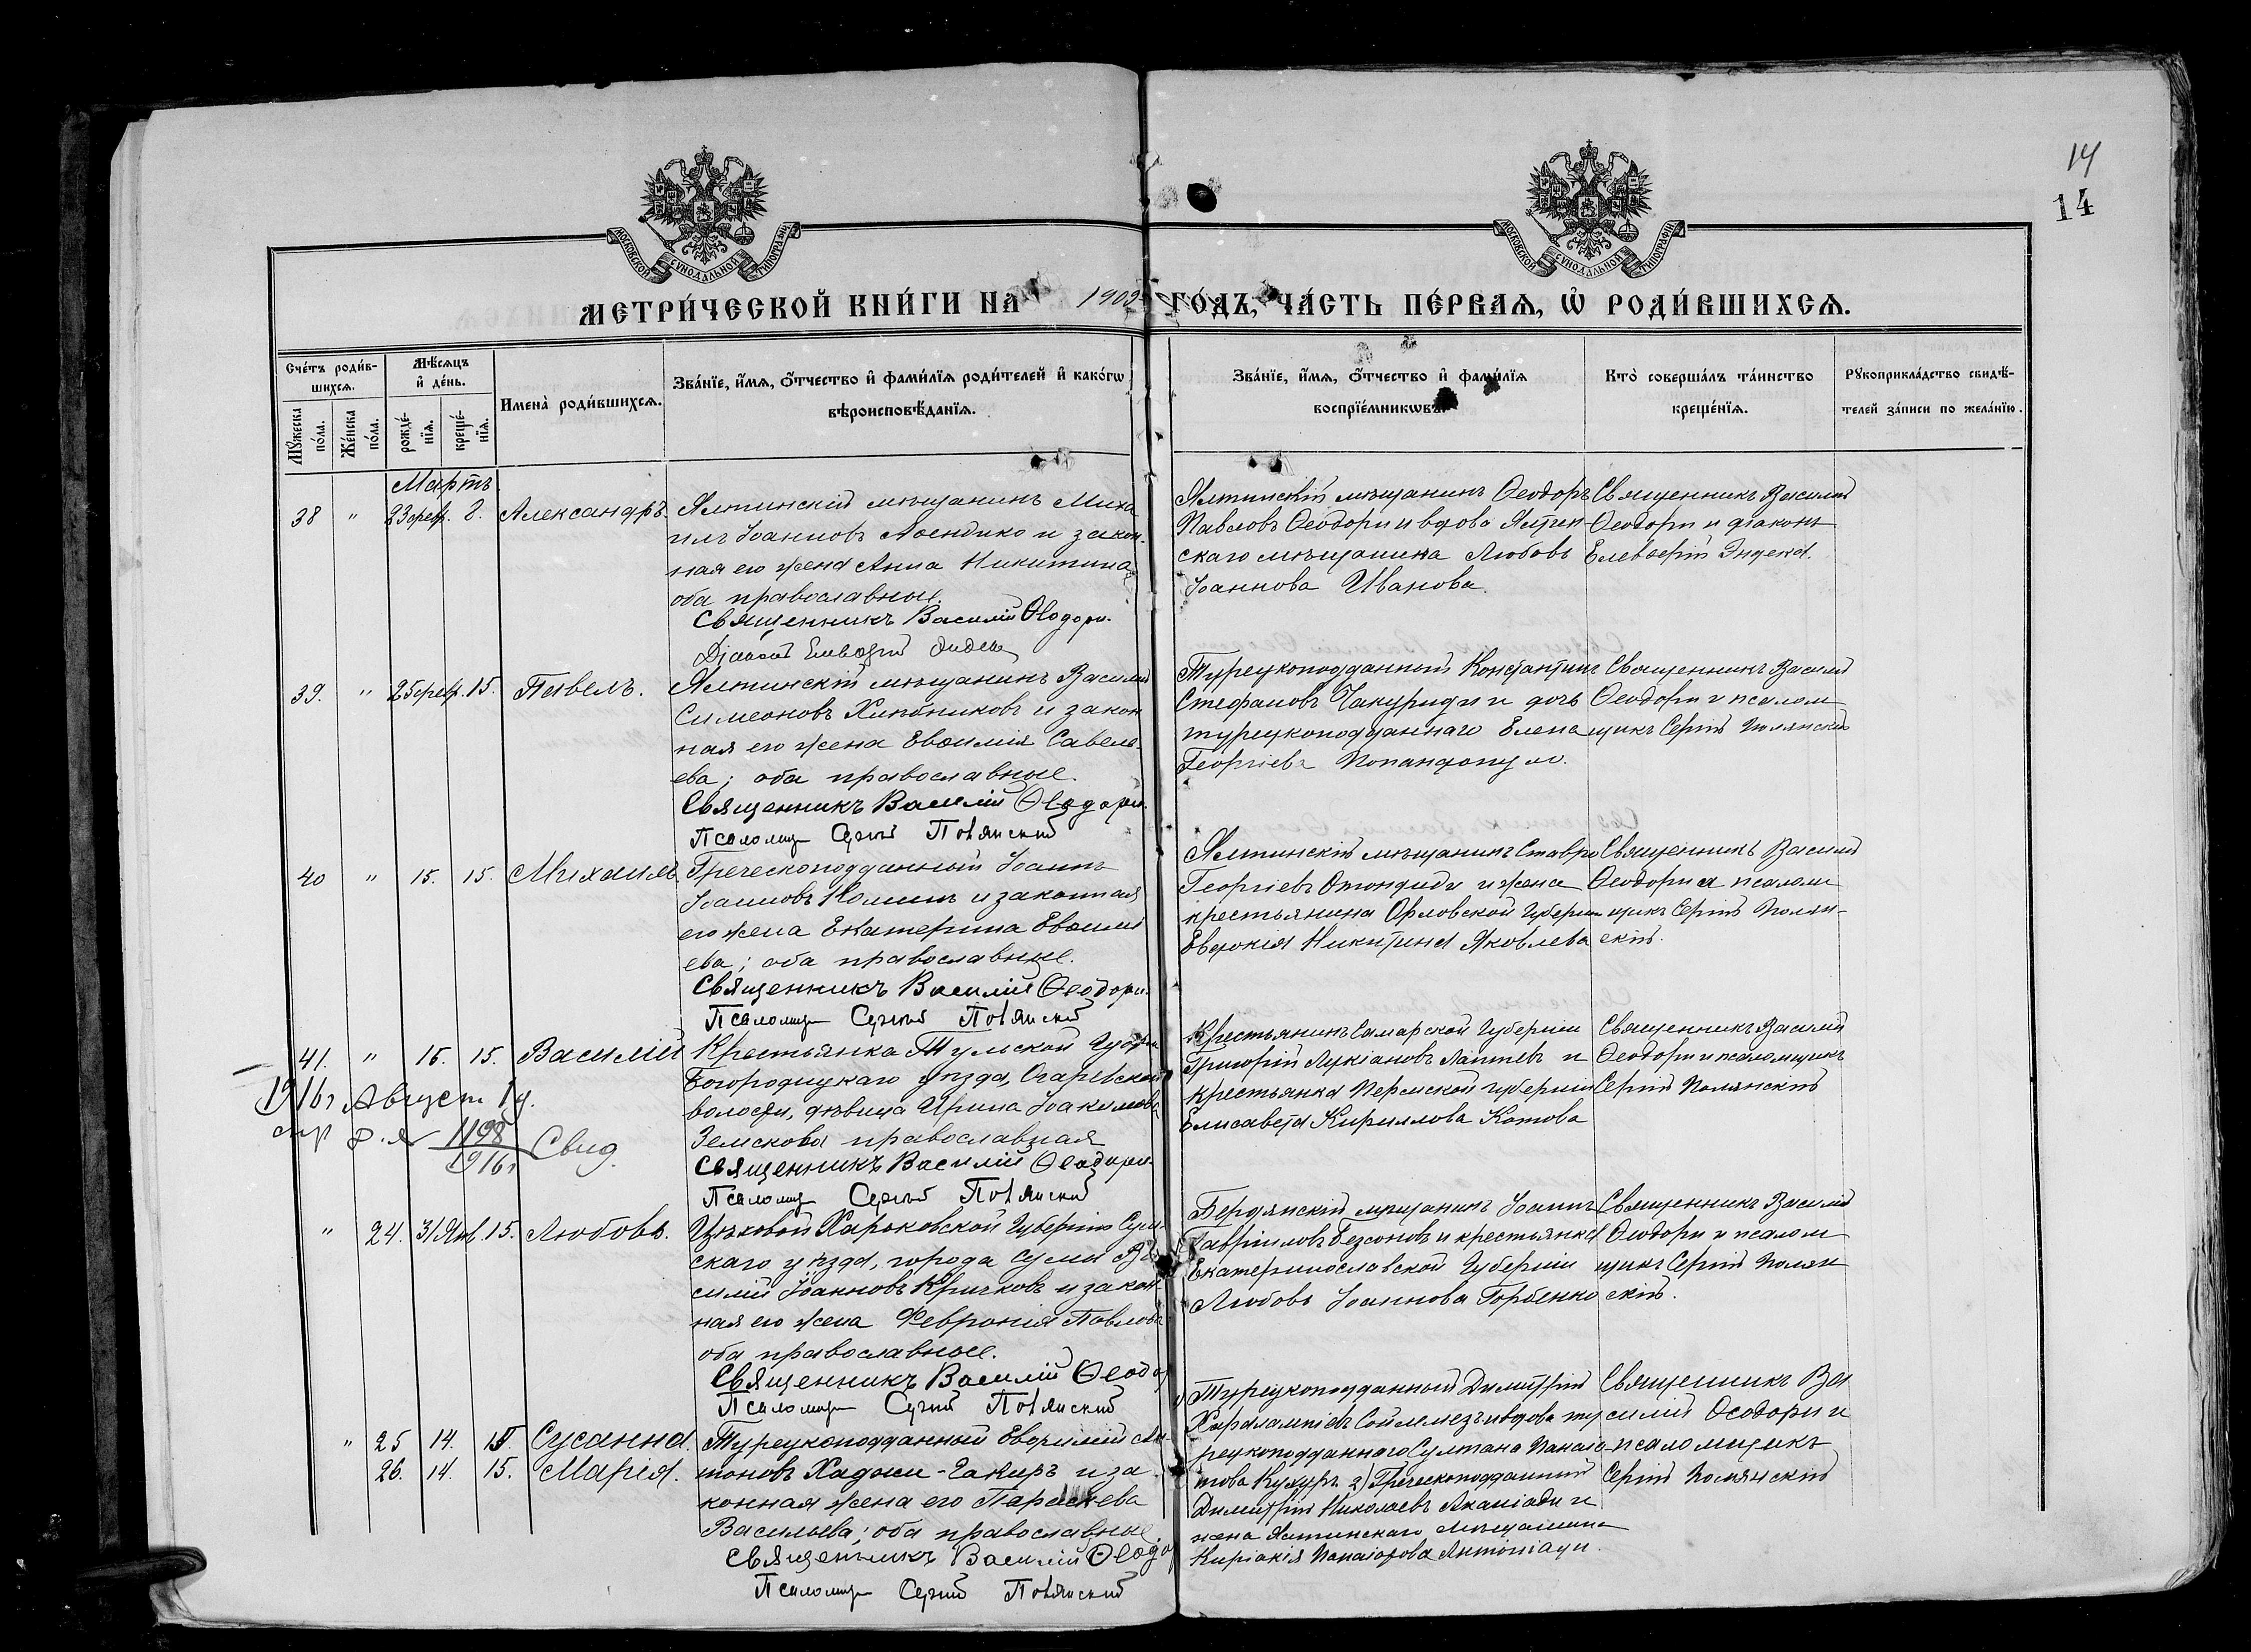 14
14
МОСКОВСКОЙ СѴНОДАЛЬНОЙ ТИПОГРАФІИ
МОСКОВСКОЙ СѴНОДАЛЬНОЙ ТИПОГРАФІИ
МЕТРИ́ЧЕСКОЙ КНИ́ГИ НА 1902 ГО́ДЪ, ЧА́СТЬ ПЕ́РВАѦ, Ѽ РОДИ́ВШИХСѦ.
Сче́тъ роди́в-
шихсѧ.
Мꙋ́жеска по́ла.
Же́нска по́ла.
Мѣ́сѧцъ
и҆ де́нь.
рожде́-
нїѧ.
креще́-
нїѧ.
Имена̀ роди́вшихсѧ.
Зва́нїе, и҆́мѧ, ѻ҆́тчество и҆ фами́лїѧ роди́телей и҆ како́гѡ
вѣроисповѣ́данїѧ.
Зва́нїе, и҆́мѧ, ѻ҆́тчество и҆ фами́лїѧ
воспрїе́мникѡвъ.
Кто̀ соверша́лъ та́инство
креще́нїѧ.
Рꙋкоприкла́дство свидѣ́-
телей за́писи по жела́нїю.
Мартъ.
38 " 23 февр. 2. Александръ.
Ялтинскій мѣщанинъ Миха
илъ Іоанновъ и закон-
ная его жена Анна Никитина
оба православные.
Священникъ Василій Ѳеодори.
Діаконъ
Ялтинскій мѣщанинъ Ѳеодоръ
Павловъ Ѳеодори и вдова
скаго мѣщанина Любовь
Іоаннова Иванова.
Священникъ Василій
Ѳеодори и діаконъ
Елевѳерій
39. " 25 февр. 15. Павелъ.
Ялтинскій мѣщанинъ Василій
Симеоновъ Хлѣбниковъ и закон
ная его жена Евѳимія Савель-
ева; оба православные.
Священникъ Василій Ѳеодори.
Псаломщ Сергій Полянскій
Турецкоподданный Константинъ
Стефановъ Чакуриди и дочь
турецкоподданнаго Елена
Георгіева Попандопуло.
Священникъ Василій
Ѳеодори и псалом
щикъ Сергій Полянскій
40 " 15. 15. Михаилъ.
Греческоподданный Іоаннъ
Іоанновъ и законная
его жена Екатерина Евѳимі
ева; оба православные.
Священникъ Василій Ѳеодори.
Псаломщ Сергій Полянскій
Ялтинскій мѣщанинъ Ставро
Георгіевъ и жена
крестьянина Орловской Губерніи
Евдокія Никитина Яковлева
Священникъ Василій
Ѳеодори и псалом
щикъ Сергій Полян-
скій.
41. " 15. 15. Василій
Крестьянка Тульской Губерніи
Богородицкаго уѣзда, Огаревской
волости, дѣвица Ирина Іоакимова
Земскова православная
Священникъ Василій Ѳеодори.
Псаломщ Сергій Полянскій
Крестьянинъ Самарской Губерніи
Григорій Лукіановъ Лаптевъ и
крестьянка Пермской губерніи
Елисавета Кириллова Котова
Священникъ Василій
Ѳеодори и псаломщикъ
Сергій Полянскій
1916г Август 14.
1198
1916г
Свид.
" 24. 31 Янв. 15. Любовь.
Цѣховой Харьковской Губерніи Сум-
скаго уѣзда, города Сумы Ва
силій Іоанновъ Кричковъ и закон-
ная его жена Февронія Павлова
оба православные.
Священникъ Василій Ѳеодо
Псаломщ Сергій Полянскій
Бердянскій мѣщанинъ Іоаннъ
Гавріиловъ Безсоновъ и крестьянка
Екатеринославской Губерніи
Любовь Іоаннова Горбенко
Священникъ Василій
Ѳеодори и псалом
щикъ Сергій Полян
скій.
" 25 14. 15. Сусанна.
26. 14. 15. Марія.
Турецкоподданный Евѳимій Ан
тоновъ Хаджи-Чакиръ и за
конная жена его Параскева
Васильева; оба православные.
Священникъ Василій Ѳеодо
Псаломщ Сергій Полянскій
Турецкоподданный Димитрій
Харалампіевъ и вдова ту
рецкоподданнаго Султана Панаіо-
това 2) Греческоподданный
Димитрій Николаевъ и
жена Ялтинскаго мѣщанина
Киріакія Панаіотова Антоніади.
Священникъ Ва
силій Ѳеодори и
псаломщикъ
Сергій Полянскій